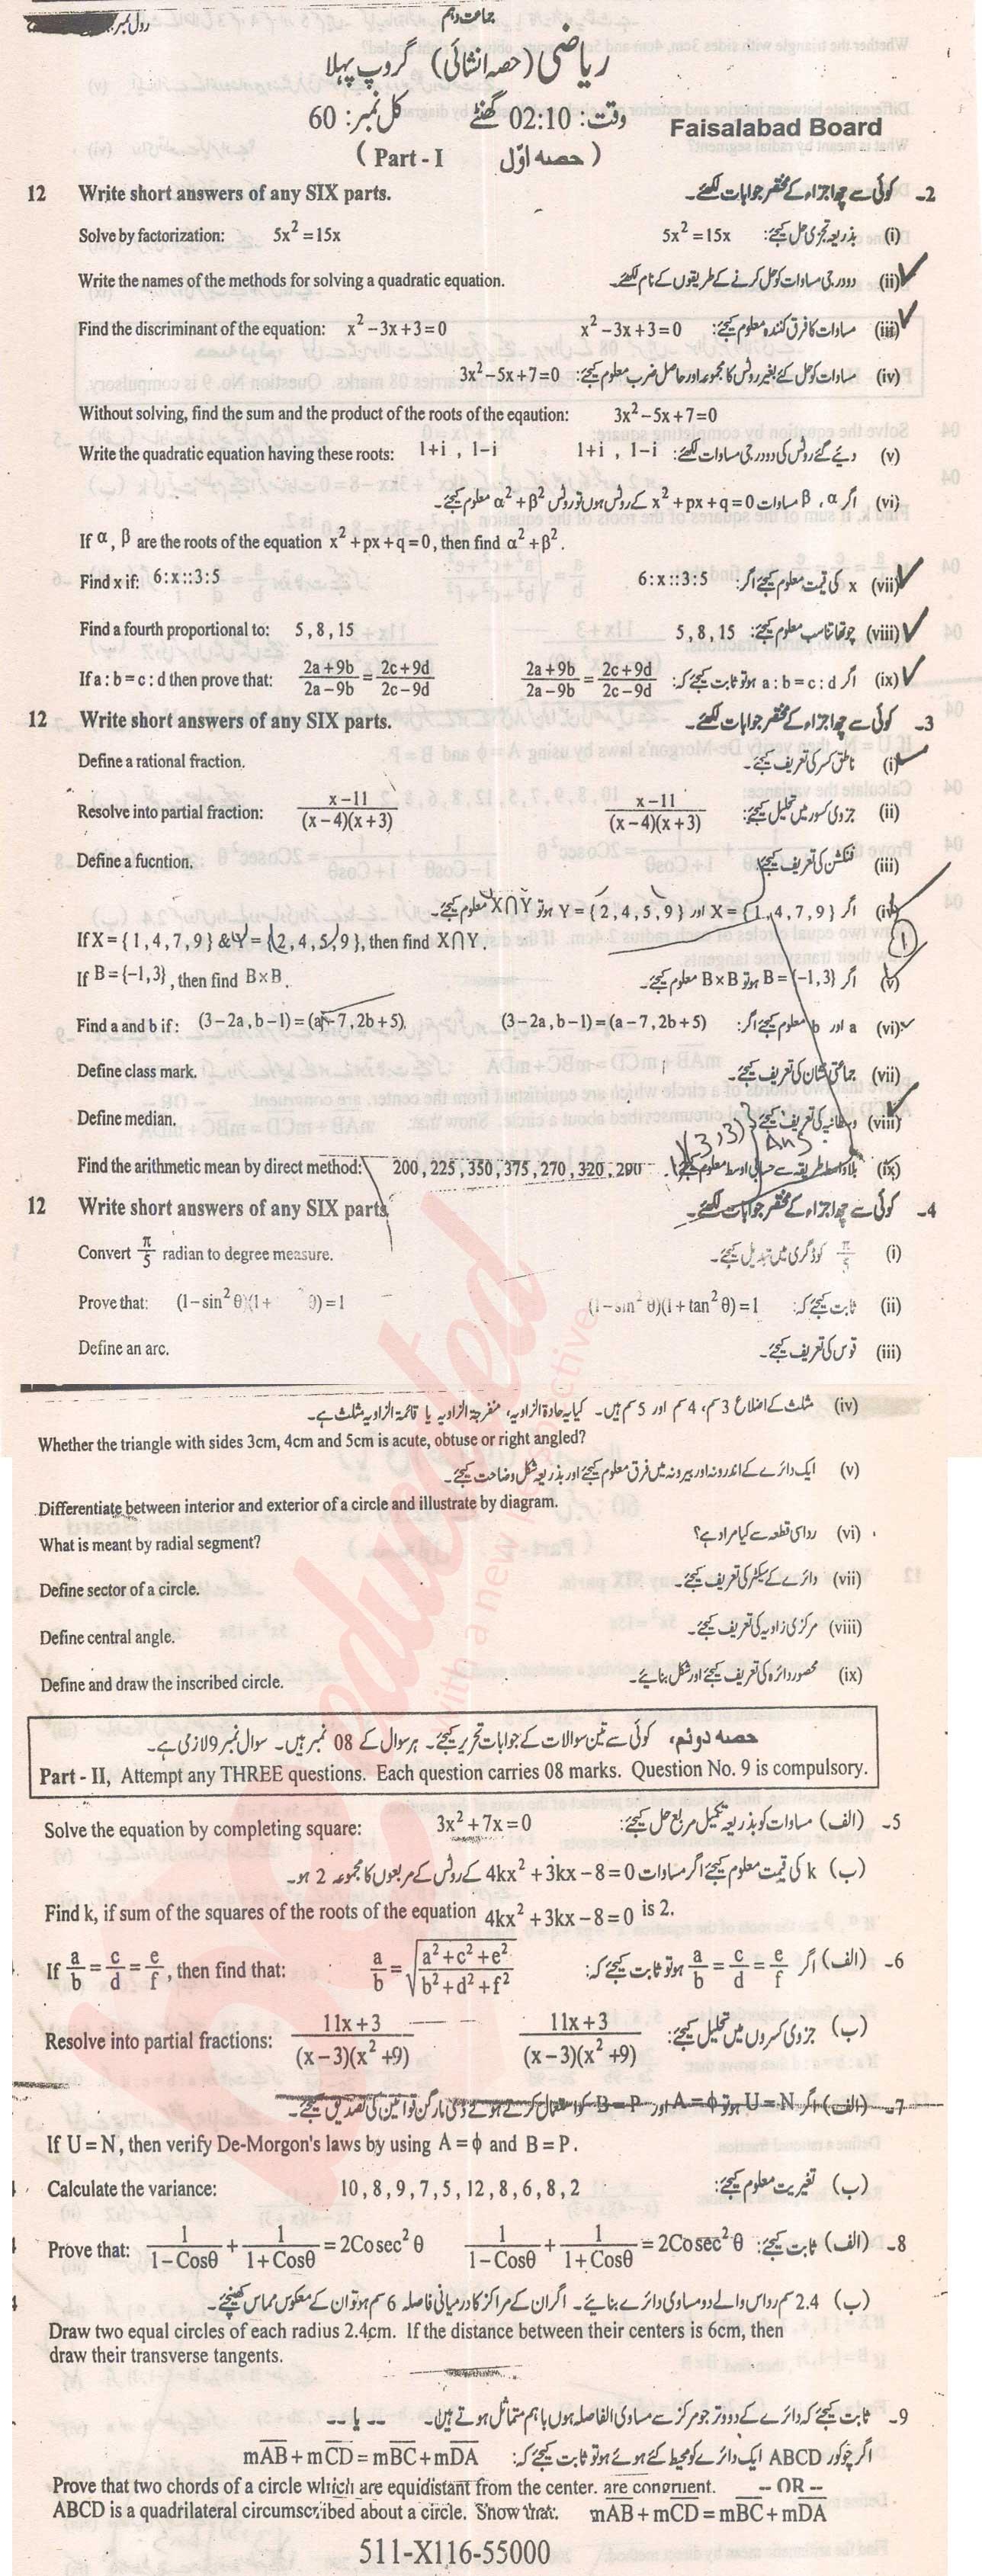 رول نمبر
جماعت دہم
ریاضی (حصہ انشائی) گروپ پہلا
وقت: 02:10 گھنٹے کل نمبر: 60
Faisalabad Board
(Part - I حصہ اوّل)
12 Write short answers of any SIX parts. کوئی سے چھ اجزاء کے مختصر جوابات لکھئے۔ 2-
Solve by factorization: 5x² = 15x 5x² = 15x بذریعہ تجزی حل کیجئے: (i)
Write the names of the methods for solving a quadratic equation. دو درجی مساوات کو حل کرنے کے طریقوں کے نام لکھئے۔ (ii)
Find the discriminant of the equation: x² − 3x + 3 = 0 x² − 3x + 3 = 0 مساوات کا فرق کنندہ معلوم کیجئے: (iii)
3x² − 5x + 7 = 0 مساوات کو حل کئے بغیر روٹس کا مجموعہ اور حاصل ضرب معلوم کیجئے: (iv)
Without solving, find the sum and the product of the roots of the eqaution: 3x² − 5x + 7 = 0
Write the quadratic equation having these roots: 1+i , 1−i 1+i , 1−i دیئے گئے روٹس کی دو درجی مساوات لکھئے: (v)
(vi) اگر α , β مساوات x² + px + q = 0 کے روٹس ہوں تو روٹس α² + β² معلوم کیجئے۔
If α, β are the roots of the equation x² + px + q = 0, then find α² + β².
Find x if: 6:x::3:5 6:x::3:5 x کی قیمت معلوم کیجئے اگر: (vii)
Find a fourth proportional to: 5 , 8 , 15 5 , 8 , 15 چوتھا تناسب معلوم کیجئے: (viii)
If a : b = c : d then prove that: (2a+9b)/(2a−9b) = (2c+9d)/(2c−9d) (2a+9b)/(2a−9b) = (2c+9d)/(2c−9d) اگر a : b = c : d ہو تو ثابت کیجئے کہ: (ix)
12 Write short answers of any SIX parts. کوئی سے چھ اجزاء کے مختصر جوابات لکھئے۔ 3-
Define a rational fraction. ناطق کسر کی تعریف کیجئے۔ (i)
Resolve into partial fraction: (x−11)/((x−4)(x+3)) (x−11)/((x−4)(x+3)) جزوی کسور میں تحلیل کیجئے: (ii)
Define a fucntion. فنکشن کی تعریف کیجئے۔ (iii)
(iv) اگر X = {1,4,7,9} اور Y = {2,4,5,9} ہو تو X∩Y معلوم کیجئے۔
If X = {1,4,7,9} & Y = {2,4,5,9}, then find X∩Y.
1
If B = {−1,3}, then find B×B. اگر B = {−1,3} ہو تو B×B معلوم کیجئے۔ (v)
Find a and b if: (3−2a, b−1) = (a−7, 2b+5). (3−2a, b−1) = (a−7, 2b+5) a اور b معلوم کیجئے اگر: (vi)
Define class mark. جماعتی نشان کی تعریف کیجئے۔ (vii)
Define median. وسطانیہ کی تعریف کیجئے۔ (viii)
(3,3) Ans
Find the arithmetic mean by direct method: 200, 225, 350, 375, 270, 320, 290 بلاواسطہ طریقہ سے حسابی اوسط معلوم کیجئے۔ (ix)
12 Write short answers of any SIX parts. کوئی سے چھ اجزاء کے مختصر جوابات لکھئے۔ 4-
Convert π/5 radian to degree measure. π/5 کو ڈگری میں تبدیل کیجئے۔ (i)
Prove that: (1−sin²θ)(1+ θ) = 1 (1−sin²θ)(1+tan²θ) = 1 ثابت کیجئے کہ: (ii)
Define an arc. قوس کی تعریف کیجئے۔ (iii)
(iv) مثلث کے اضلاع 3 سم، 4 سم اور 5 سم ہیں۔ کیا یہ حادۃ الزاویہ، منفرجۃ الزاویہ یا قائمۃ الزاویہ مثلث ہے۔
Whether the triangle with sides 3cm, 4cm and 5cm is acute, obtuse or right angled?
(v) ایک دائرے کے اندرونہ اور بیرونہ میں فرق معلوم کیجئے اور بذریعہ شکل وضاحت کیجئے۔
Differentiate between interior and exterior of a circle and illustrate by diagram.
What is meant by radial segment? رداسی قطعہ سے کیا مراد ہے؟ (vi)
Define sector of a circle. دائرے کے سیکٹر کی تعریف کیجئے۔ (vii)
Define central angle. مرکزی زاویہ کی تعریف کیجئے۔ (viii)
Define and draw the inscribed circle. محصور دائرہ کی تعریف کیجئے اور شکل بنائیے۔ (ix)
حصہ دوئم، کوئی سے تین سوالات کے جوابات تحریر کیجئے۔ ہر سوال کے 08 نمبر ہیں۔ سوال نمبر 9 لازمی ہے۔
Part - II, Attempt any THREE questions. Each question carries 08 marks. Question No. 9 is compulsory.
Solve the equation by completing square: 3x² + 7x = 0 مساوات کو بذریعہ تکمیل مربع حل کیجئے: (الف) 5-
(ب) k کی قیمت معلوم کیجئے اگر مساوات 4kx² + 3kx − 8 = 0 کے روٹس کے مربعوں کا مجموعہ 2 ہو۔
Find k, if sum of the squares of the roots of the equation 4kx² + 3kx − 8 = 0 is 2.
If a/b = c/d = e/f, then find that: a/b = √((a²+c²+e²)/(b²+d²+f²)) اگر a/b = c/d = e/f ہو تو ثابت کیجئے کہ: (الف) 6-
Resolve into partial fractions: (11x+3)/((x−3)(x²+9)) (11x+3)/((x−3)(x²+9)) جزوی کسروں میں تحلیل کیجئے: (ب)
7- (الف) اگر U = N ہو تو A = ϕ اور B = P کو استعمال کرتے ہوئے ڈی مارگن قوانین کی تصدیق کیجئے۔
If U = N, then verify De-Morgon's laws by using A = ϕ and B = P.
Calculate the variance: 10, 8, 9, 7, 5, 12, 8, 6, 8, 2 تغیریت معلوم کیجئے: (ب)
Prove that: 1/(1−Cosθ) + 1/(1+Cosθ) = 2Cosec²θ 1/(1−Cosθ) + 1/(1+Cosθ) = 2Cosec²θ ثابت کیجئے: (الف) 8-
(ب) 2.4 سم رداس والے دو مساوی دائرے بنائیے۔ اگر ان کے مراکز کا درمیانی فاصلہ 6 سم ہو تو ان کے معکوس مماس کھینچئے۔
Draw two equal circles of each radius 2.4cm. If the distance between their centers is 6cm, then
draw their transverse tangents.
9- ثابت کیجئے کہ دائرے کے دو وتر جو مرکز سے مساوی الفاصلہ ہوں باہم متماثل ہوتے ہیں۔ -- یا --
اگر چوکور ABCD ایک دائرے کو محیط کئے ہوئے ہو تو ثابت کیجئے کہ: mAB + mCD = mBC + mDA
Prove that two chords of a circle which are equidistant from the center. are congruent. -- OR --
ABCD is a quadrilateral circumscribed about a circle. Show that: mAB + mCD = mBC + mDA
511-X116-55000